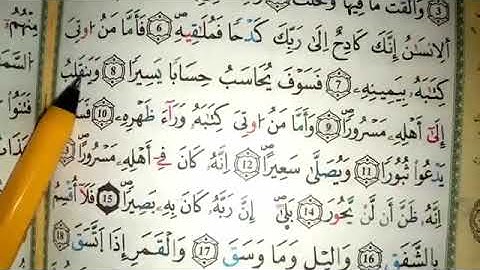 وَأَلْقَتْ مَا فِيهَا وَتَخَلَّتْ
اَلْاِنْسَانُ اِنَّكَ كَادِحٌ اِلٰى رَبِّكَ كَدْحًا فَمُلَاقِيهِ ﴿6﴾ فَاَمَّا مَنْ اُوتِىَ
كِتَابَهُ بِيَمِينِهِ ﴿7﴾ فَسَوْفَ يُحَاسَبُ حِسَابًا يَسِيرًا ﴿8﴾ وَيَنْقَلِبُ
اِلٰٓى اَهْلِهِ مَسْرُورًا ﴿9﴾ وَاَمَّا مَنْ اُوتِىَ كِتَابَهُ وَرَآءَ ظَهْرِهِ ﴿10﴾
يَدْعُوا ثُبُورًا ﴿11﴾ وَيَصْلٰى سَعِيرًا ﴿12﴾ اِنَّهُ كَانَ فِىٓ اَهْلِهِ مَسْرُورًا
اِنَّهُ ظَنَّ اَنْ لَنْ يَحُورَ ﴿14﴾ بَلٰىٓ اِنَّ رَبَّهُ كَانَ بِهِ بَصِيرًا ﴿15﴾ فَلَآ اُقْسِمُ
بِالشَّفَقِ ﴿16﴾ وَالَّيْلِ وَمَا وَسَقَ ﴿17﴾ وَالْقَمَرِ اِذَا اتَّسَقَ ﴿18﴾